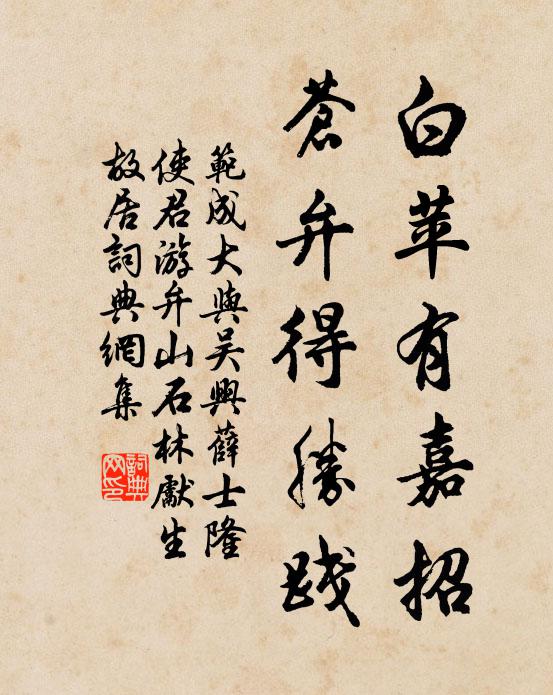 白苹有嘉招
苍弁得勝践
範成大與吴興薛士隆
使君游弁山石林獻生
故居詞典網集
詞典网印